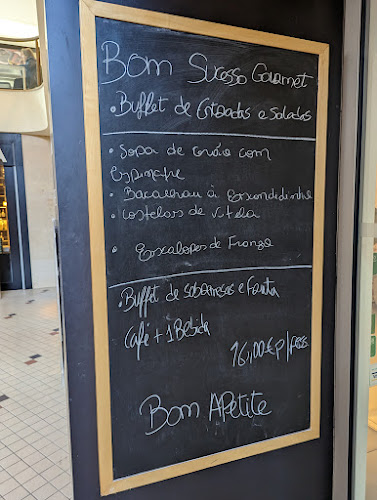 Bom Sucesso Gourmet
• Buffet de Entradas e Saladas
• Sopa de com
Espinafre
• Bacalhau à Escondidinho
• Costelas de Vitela
• Escalopes de Frango
• Buffet de sobremesas e Fruta
Café + 1 Bebida
16,00€ p/pess
Bom APetite